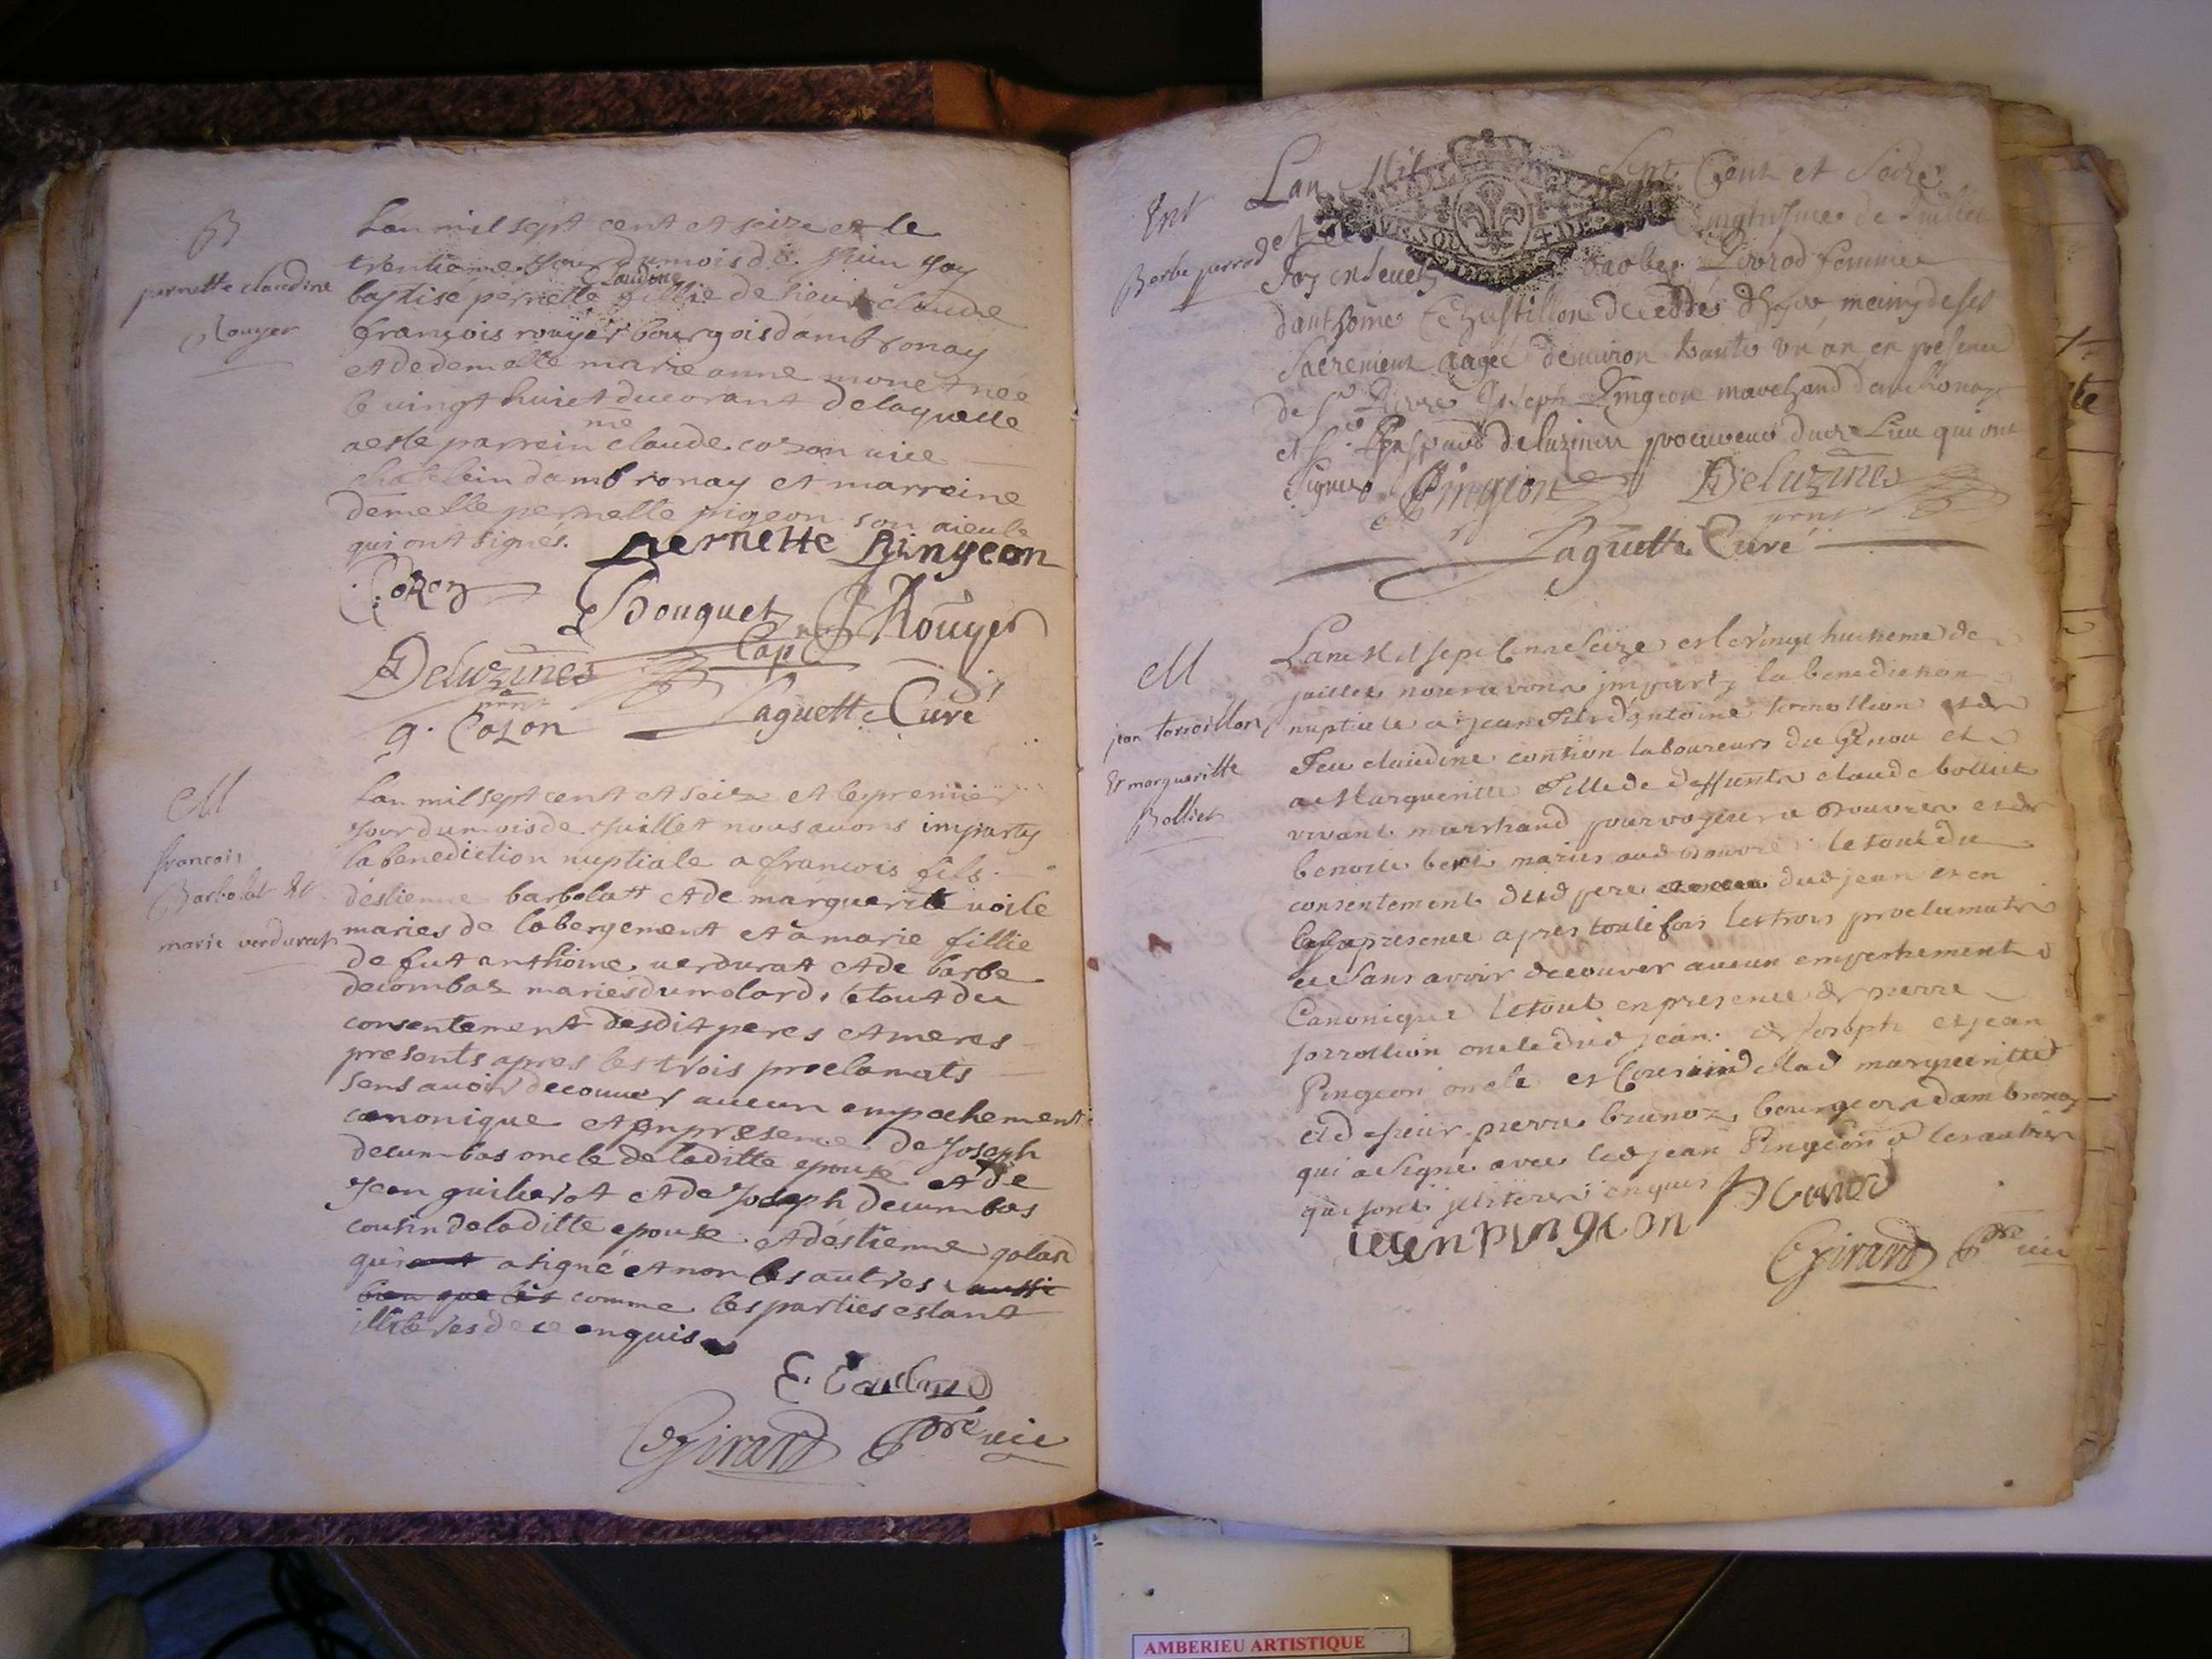 B
pernette claudine
Rouyer
Lan mil sept cent et seize et le
trentieme jour du mois de Juin jay
baptisé pernette claudine fillie de sieur claude
françois rouyer bourgois dambronay
et de demelle marie anne monet née
le vingt huict du corant de laquelle
a este parrein me claude cozon vice
chatelein dambronay et marreine
demelle pernette pigeon son aieule
qui ont signés. pernette Pingeon
Cozon
Bouguet
Rouyer
Cap
Deluzines
prnt
g. Cozon
Laguette Curé
M
francois
Barbolat et
marie verdurat
Lan mil sept cent et seize et le premier
jour du mois de juillet nous avons imparty
la benediction nuptiale a francois fils
d'estienne barbolatt et de marguerite voile
maries de labergement et à marie fillie
de fut anthoine verdurat et de barbe
decombas maries du molard, le tout du
consentement desdit peres et meres
presents apres les trois proclamats
sens avoir decouver aucun empechement
canonique et en presence de Joseph
decumbas oncle de laditte epouse et de
jean guillerot et de joseph decumbas
cousin de laditte epouse et d'estienne galand
qui ont a signé et non les autres aussi
bien que les comme les parties estant
illiteres de ce enquis
E. Gauland
Girard Pbre vic
Ent
Barbe perrod
Lan Mil Sept Cent et Seize
et le
de Juillet
Jay enseveli barbe Perrod femme
danthoine
decedée
munÿ de ses
Sacrement aagée denviron trante un an en presence
de sr Pierre Joseph Pingeon marchand dambronay
et sr Gaspard deluzines procureur dud Lieu qui ont
Signés Pingeon Deluzines
prnt
Laguette Curé
M
jean torroillon
Et margueritte
Bolliet
Lan Mil sept cent Seize et le vingt huitieme de
juillet nous avons imparty la benediction
nuptiale a jean fils d'antoine torrollion et de
feu claudine contion laboureurs du Genou et
a Margueritte fille de deffunts claude bolliet
vivant marchand pourvoyeur a Douvres et de
benoite maries aud Douvres le tout du
consentement dud pere dud jean et en
sa presence apres toute fois les trois proclamats
et sans avoir decouver aucun empechement
Canonique le tout en presence de pierre
torrollion oncle dud jean de Joseph et jean
Pingeon oncle et Cousin de lad margueritte
et de sieur pierre brunoz bourgeois dambronay
qui a signé avec led jean Pingeon et les autres
qui sont jlliteres enquis
iean pingeon
Girard Pbre vic
AMBERIEU ARTISTIQUE